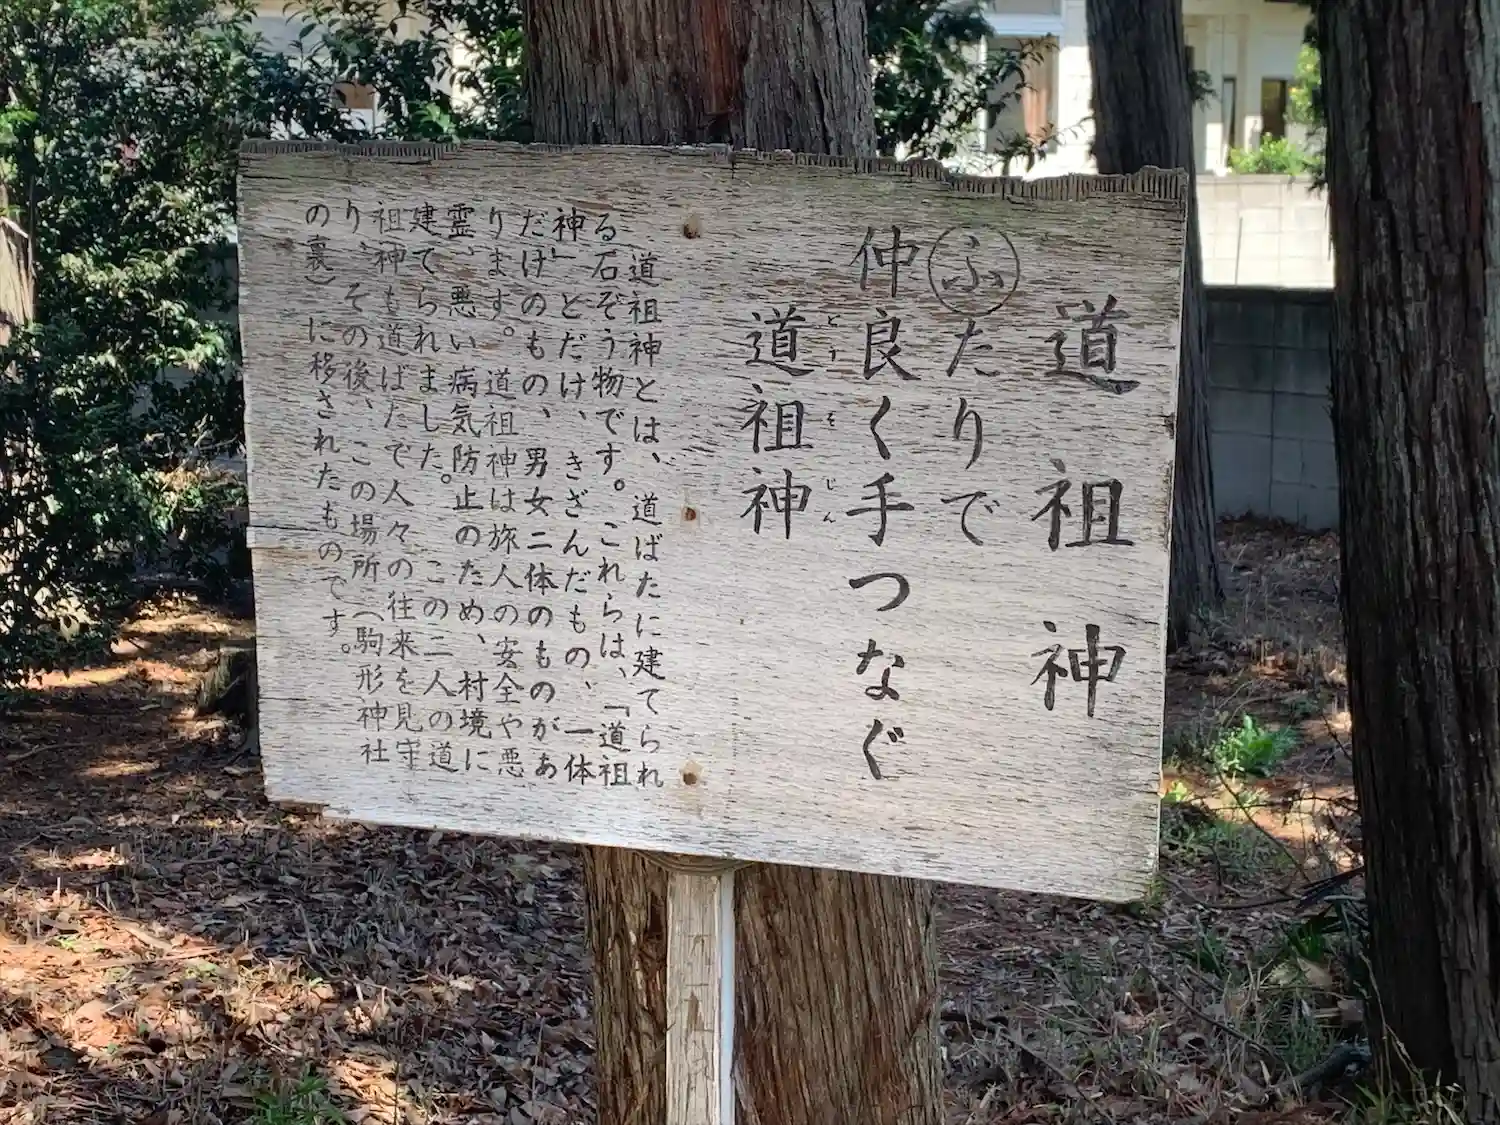 道祖神
ふたりで
仲良く手つなぐ
道祖神
どうそじん
道祖神とは、道ばたに建てられ
る石ぞう物です。これらは、「道祖
神」とだけ、きざんだもの、一体
だけのもの、男女二体のものがあ
ります。道祖神は旅人の安全や悪
霊、悪い病気防止のため、村境に
建てられました。この二人の道
祖神も道ばたで人々の往来を見守
り、その後、この場所(駒形神社
の裏)に移されたものです。